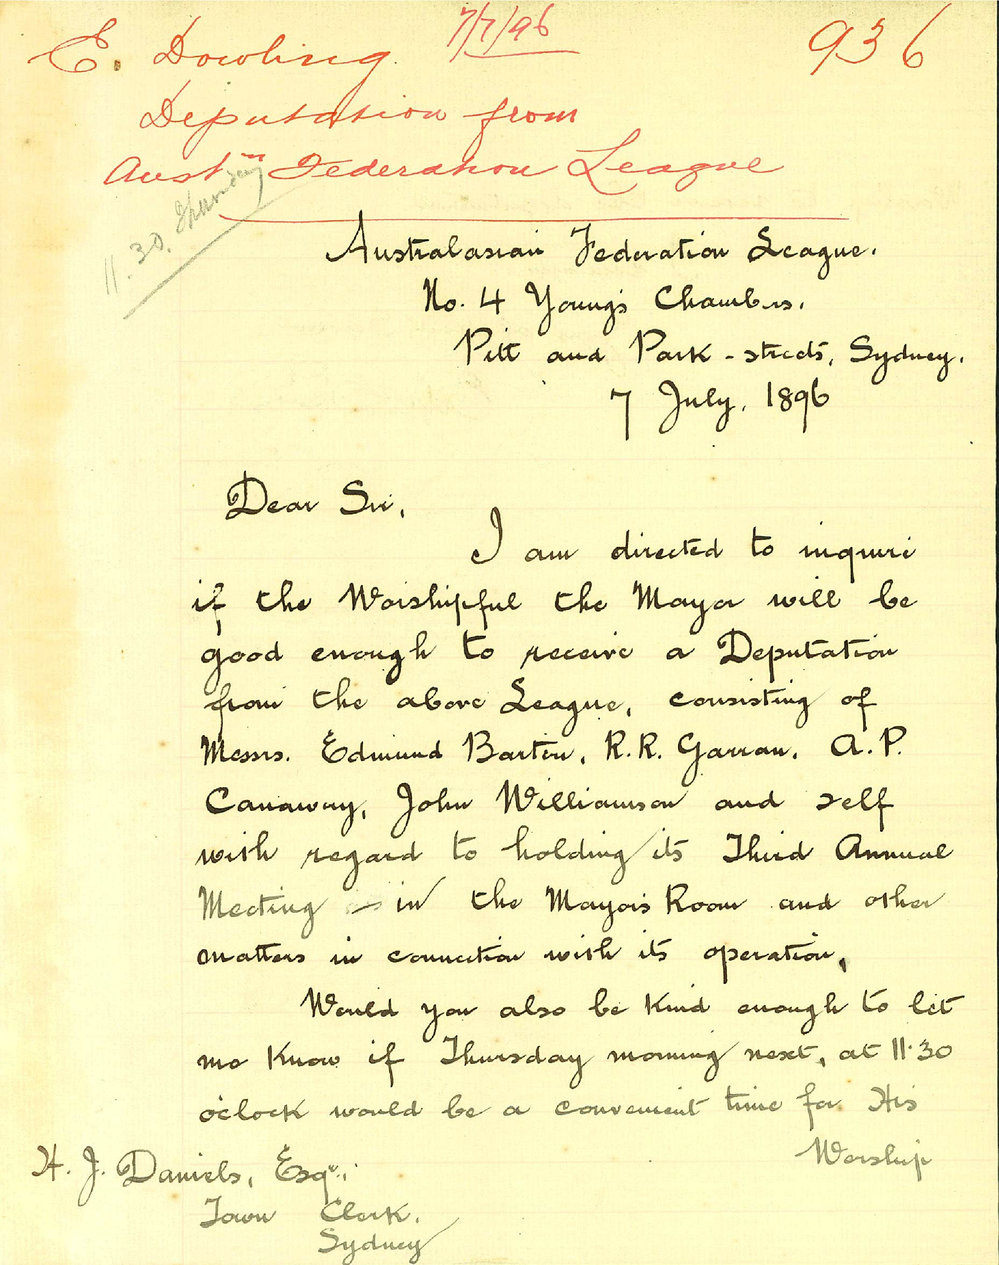 7/7/96
936
E. Dowling.
Deputation from
Austn Federation League
11.30. Thursday
Australasian Federation League.
No. 4 Young's Chambers.
Pitt and Park-streets, Sydney.
7 July, 1896
Dear Sir,
I am directed to inquire
if the Worshipful the Mayor will be
good enough to receive a Deputation
from the above League, consisting of
Messrs. Edmund Barton, R.R. Garran, A.P.
Canaway, John Williamson and self
with regard to holding its Third Annual
Meeting in the Mayor's Room and other
matters in connection with its operation.
Would you also be kind enough to let
me know if Thursday morning next, at 11.30
o'clock would be a convenient time for His
Worship
H. J. Daniels, Esqr.,
Town Clerk.
Sydney